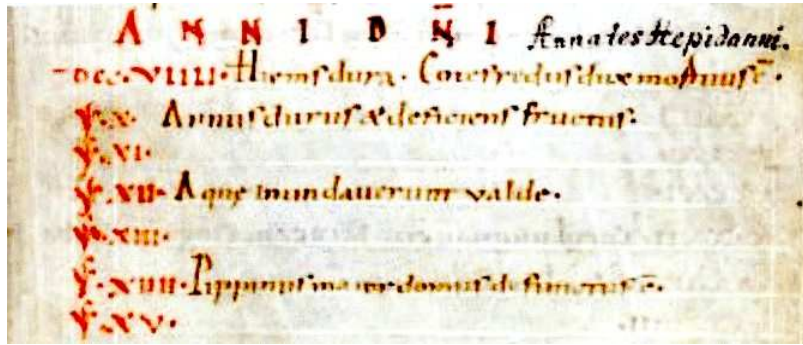 ANNI DN̄I Annales Hepidanni.
DCC·VIIII· Hiems dura. Cotefredus dux mortuus ē.
X· Annus durus & deficiens fructus.
XI·
XII· Aquę inundauerunt valde.
XIII·
XIIII· Pippinus maior domus defunctus ē.
XV·